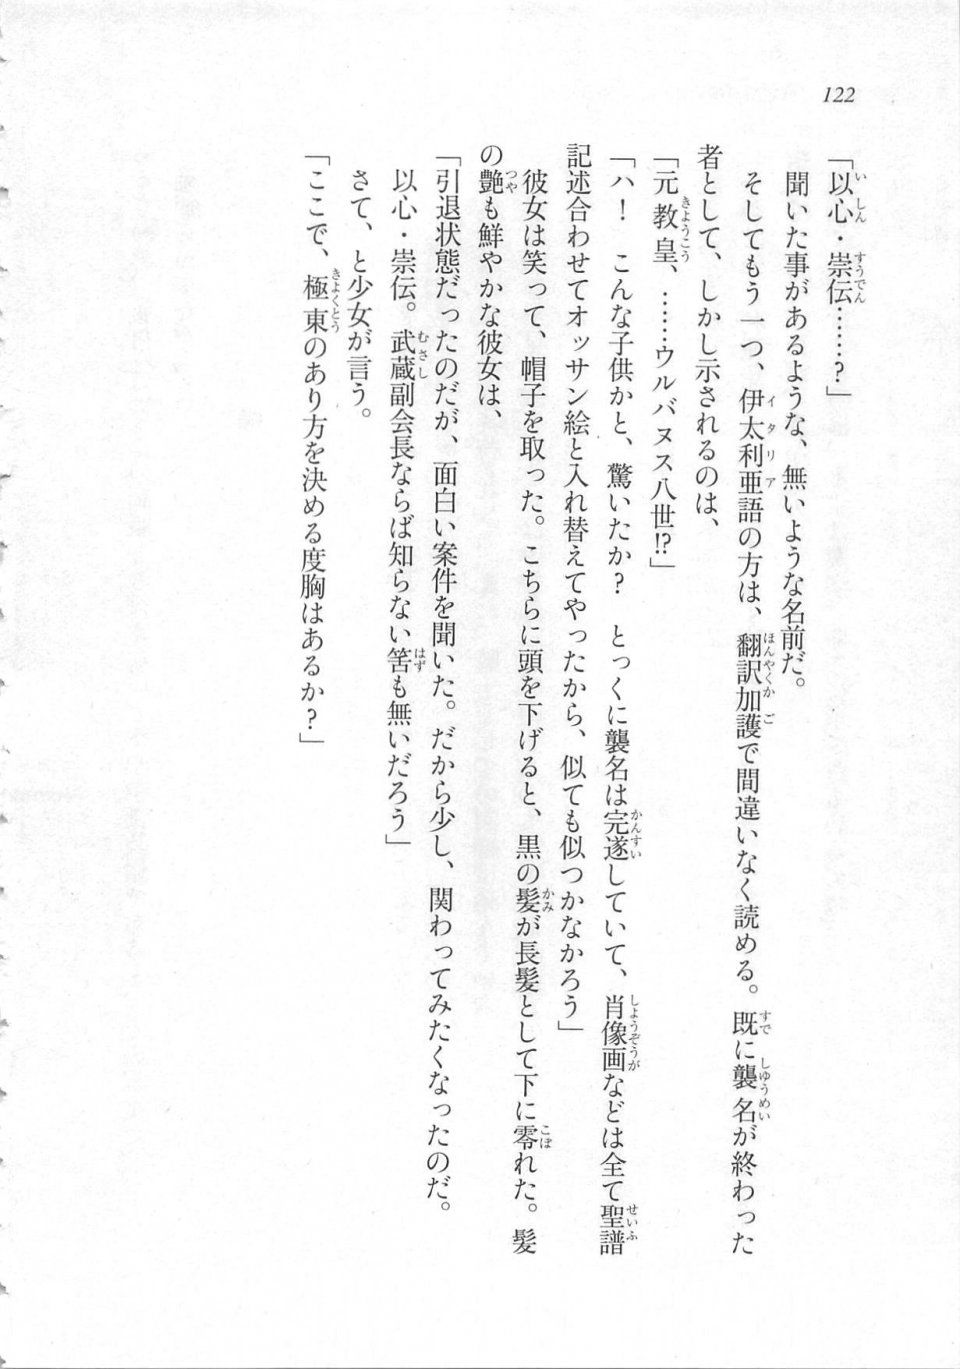 122
「以心・崇伝……？」
聞いた事があるような、無いような名前だ。
そしてもう一つ、伊太利亜語の方は、翻訳加護で間違いなく読める。既に襲名が終わった
者として、しかし示されるのは、
「元教皇、……ウルバヌス八世!?」
「ハ！　こんな子供かと、驚いたか？　とっくに襲名は完遂していて、肖像画などは全て聖譜
記述合わせてオッサン絵と入れ替えてやったから、似ても似つかなかろう」
彼女は笑って、帽子を取った。こちらに頭を下げると、黒の髪が長髪として下に零れた。髪
の艶も鮮やかな彼女は、
「引退状態だったのだが、面白い案件を聞いた。だから少し、関わってみたくなったのだ。
以心・崇伝。武蔵副会長ならば知らない筈も無いだろう」
さて、と少女が言う。
「ここで、極東のあり方を決める度胸はあるか？」